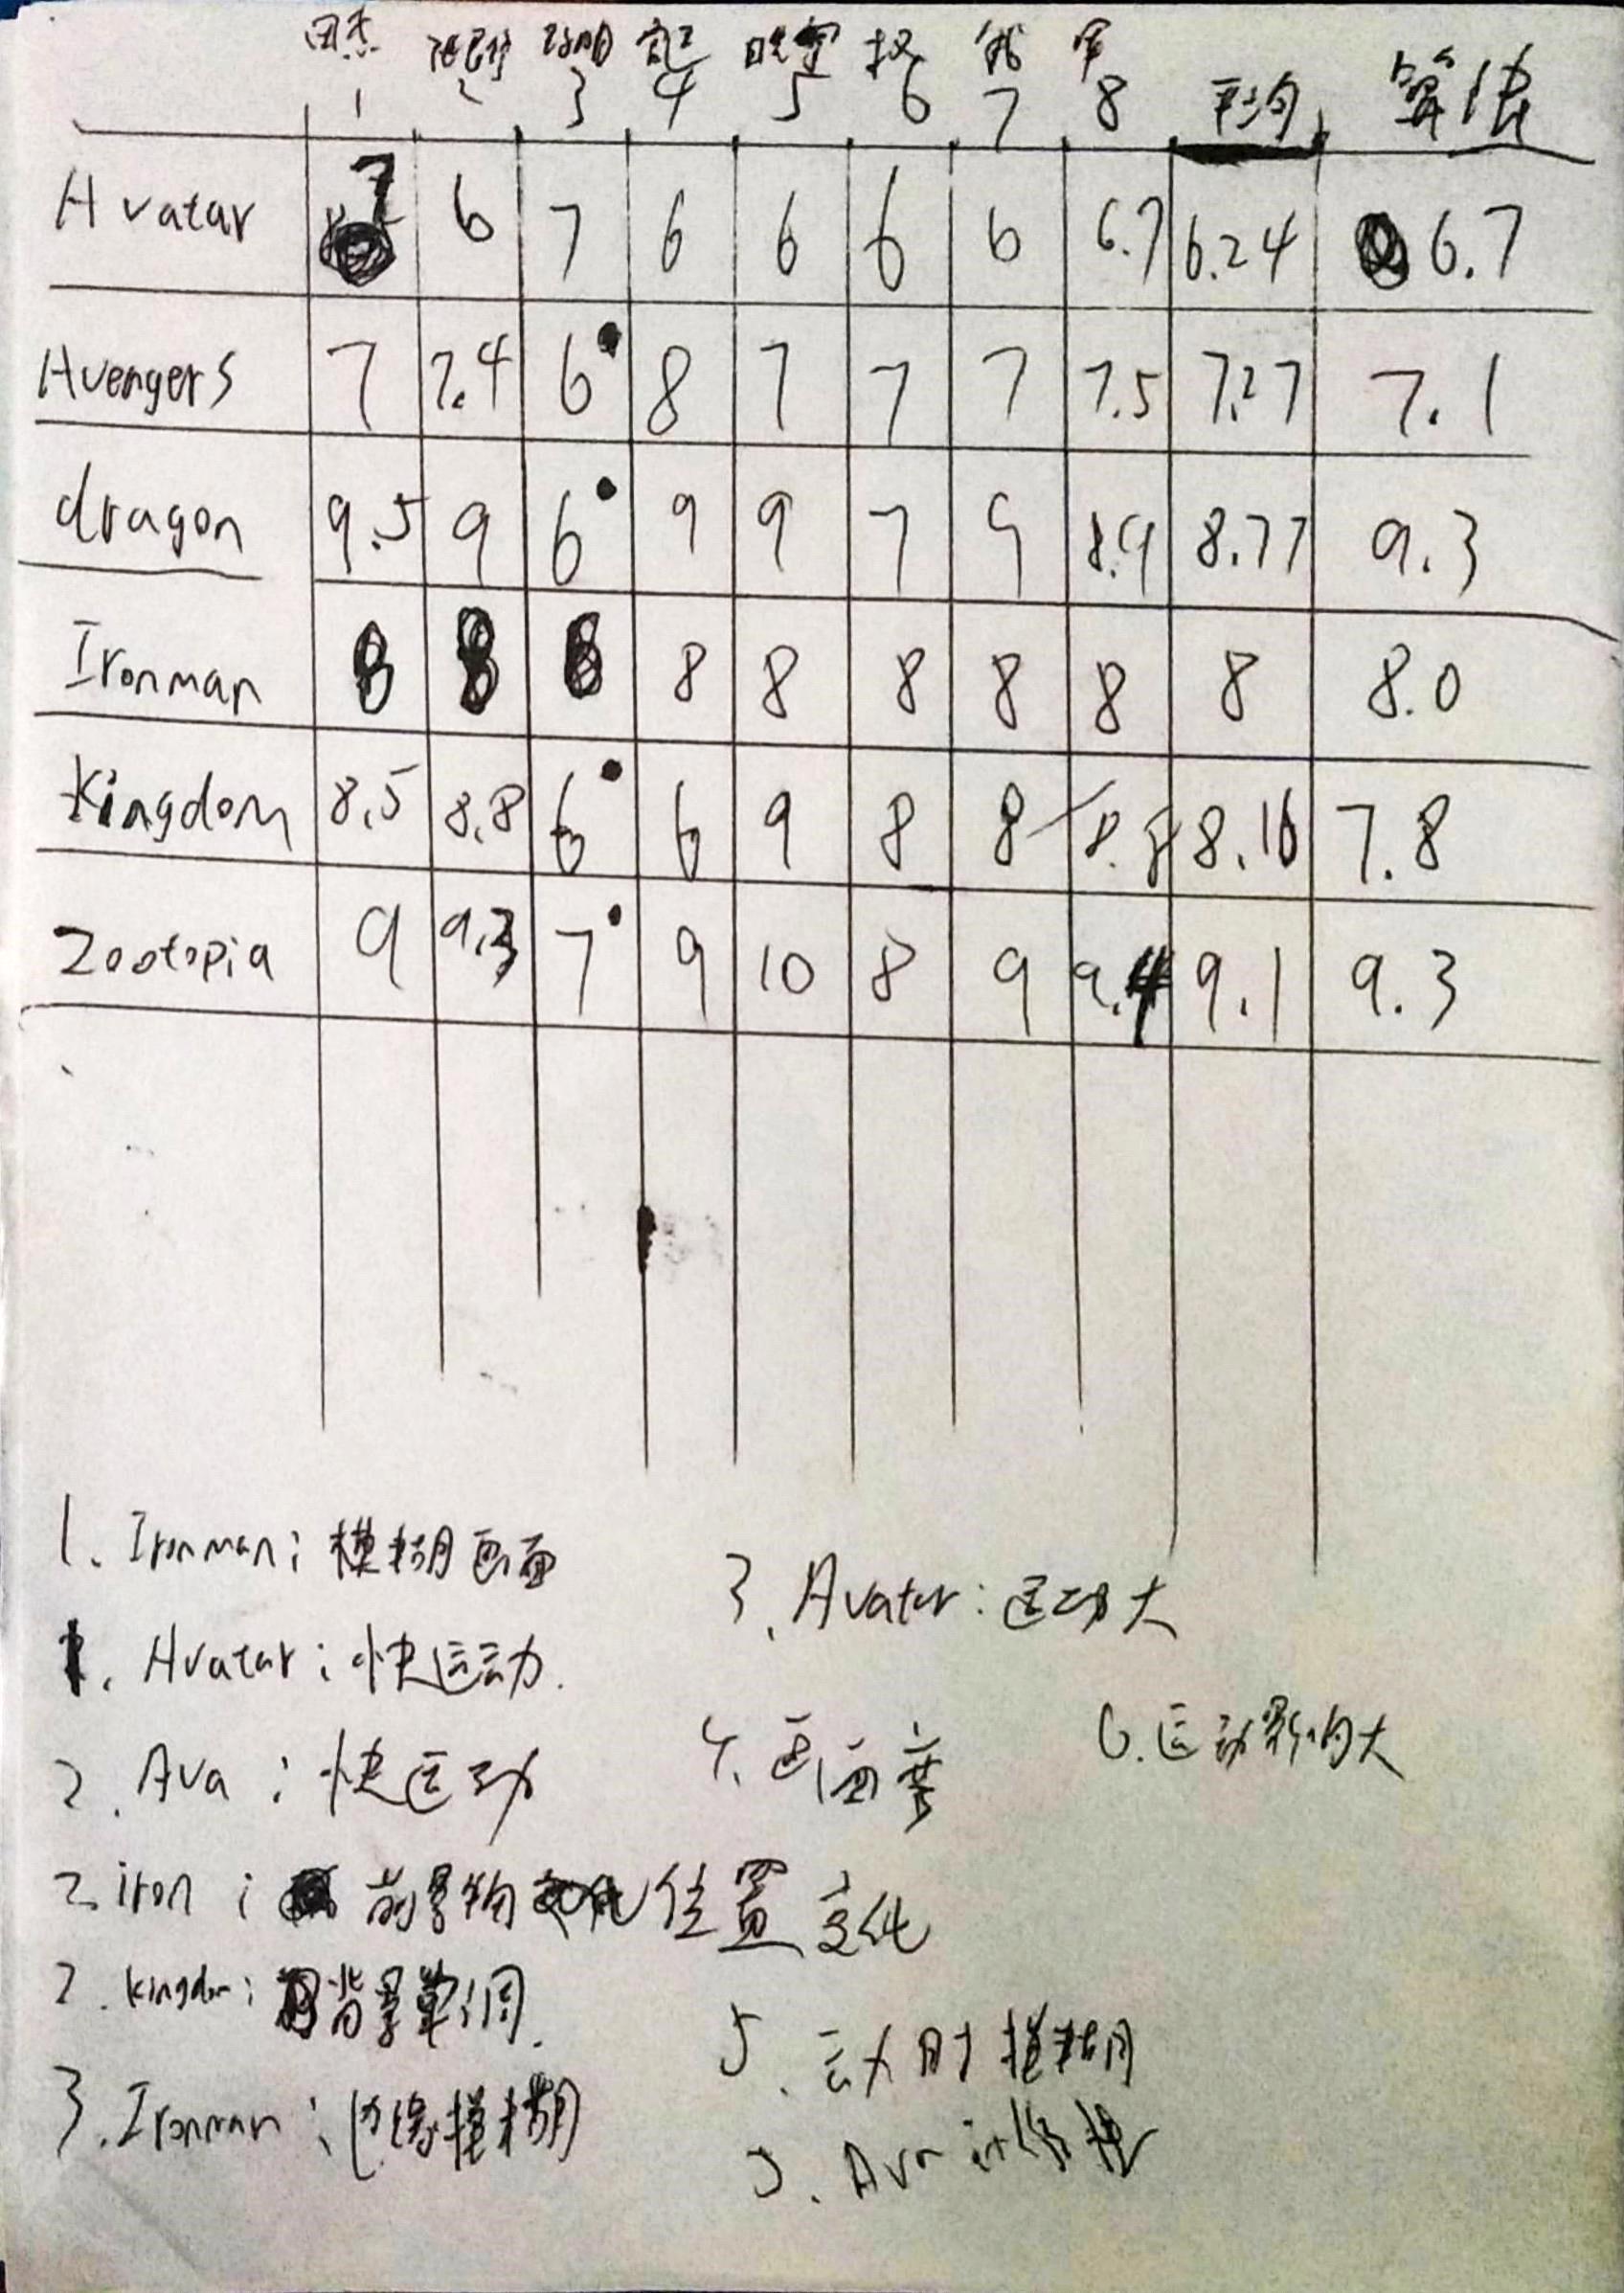 1 2 3 4 5 6 7 8 平均 算法
Avatar 7 6 7 6 6 6 6 6.7 6.24 6.7
Avengers 7 7.4 6 8 7 7 7 7.5 7.27 7.1
dragon 9.5 9 6 9 9 7 9 8.9 8.77 9.3
Ironman 8 8 8 8 8 8 8 8 8 8.0
Kingdom 8.5 8.8 6 6 9 8 8 8.8 8.16 7.8
Zootopia 9 9.3 7 9 10 8 9 9.4 9.1 9.3
1. Ironman: 模糊画面
1. Avatar: 快运动.
2. Ava: 快运动
2 iron: 前景物 位置变化
2. kingdom: 背景单调.
3. Ironman: 边缘模糊
3. Avatar: 运动大
4. 画面
5. 动时模糊
5. Ava
6. 运动影响大